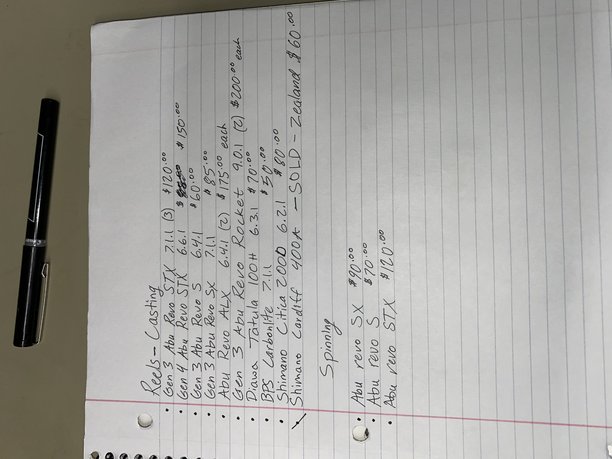 Reels - Casting
• Gen 3 Abu Revo STX 7.1.1 (3) $120.00
• Gen 4 Abu Revo STX 6.6.1 $150.00
• Gen 3 Abu Revo S 6.4.1 $60.00
• Gen 3 Abu Revo Sx 7.1.1 $85.00
• Abu Revo ALX 6.4.1 (2) $175.00 each
• Gen 3 Abu Revo Rocket 9.0.1 (2) $200.00 each
• Diawa Tatula 100H 6.3.1 $70.00
• BPS Carbonlite 7.1.1 $50.00
• Shimano Citica 200D 6.2.1 $80.00
• Shimano Cardiff 400A - SOLD - Zealand $60.00
Spinning
• Abu revo SX $90.00
• Abu revo S $70.00
• Abu revo STX $120.00